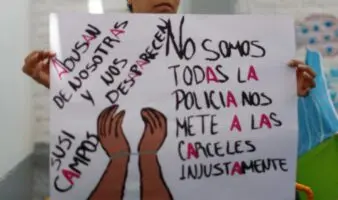 ABUSAN
DE NOSOTRAS
Y NOS
DESAPARECEN
SUSI
CAMPOS
NO SOMOS
TODAS LA
POLICIA NOS
METE A LAS
CARCELES
INJUSTAMENTE